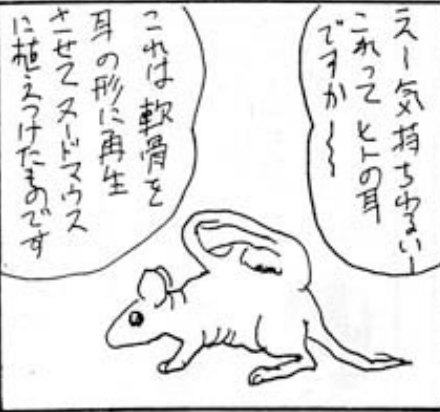 えー気持ちわるいー
これって ヒトの耳
ですか〜〜
これは 軟骨を
耳の形に再生
させて ヌードマウス
に植えつけたものです